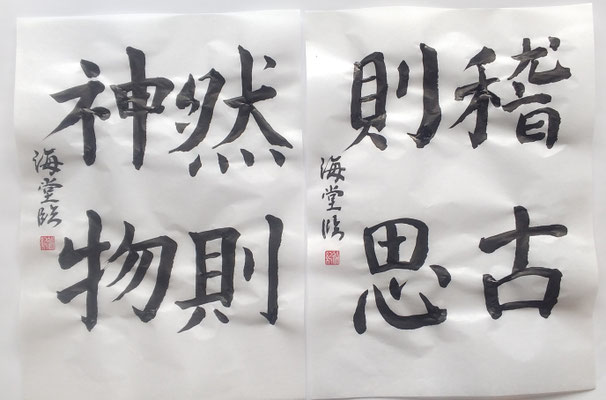 稽古
則思
海堂臨
然則
神物
海堂臨